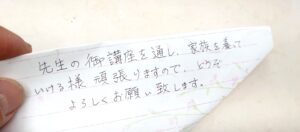 先生の御講座を通し、家族を養って
いける様 頑張りますので、どうぞ
よろしくお願い致します。